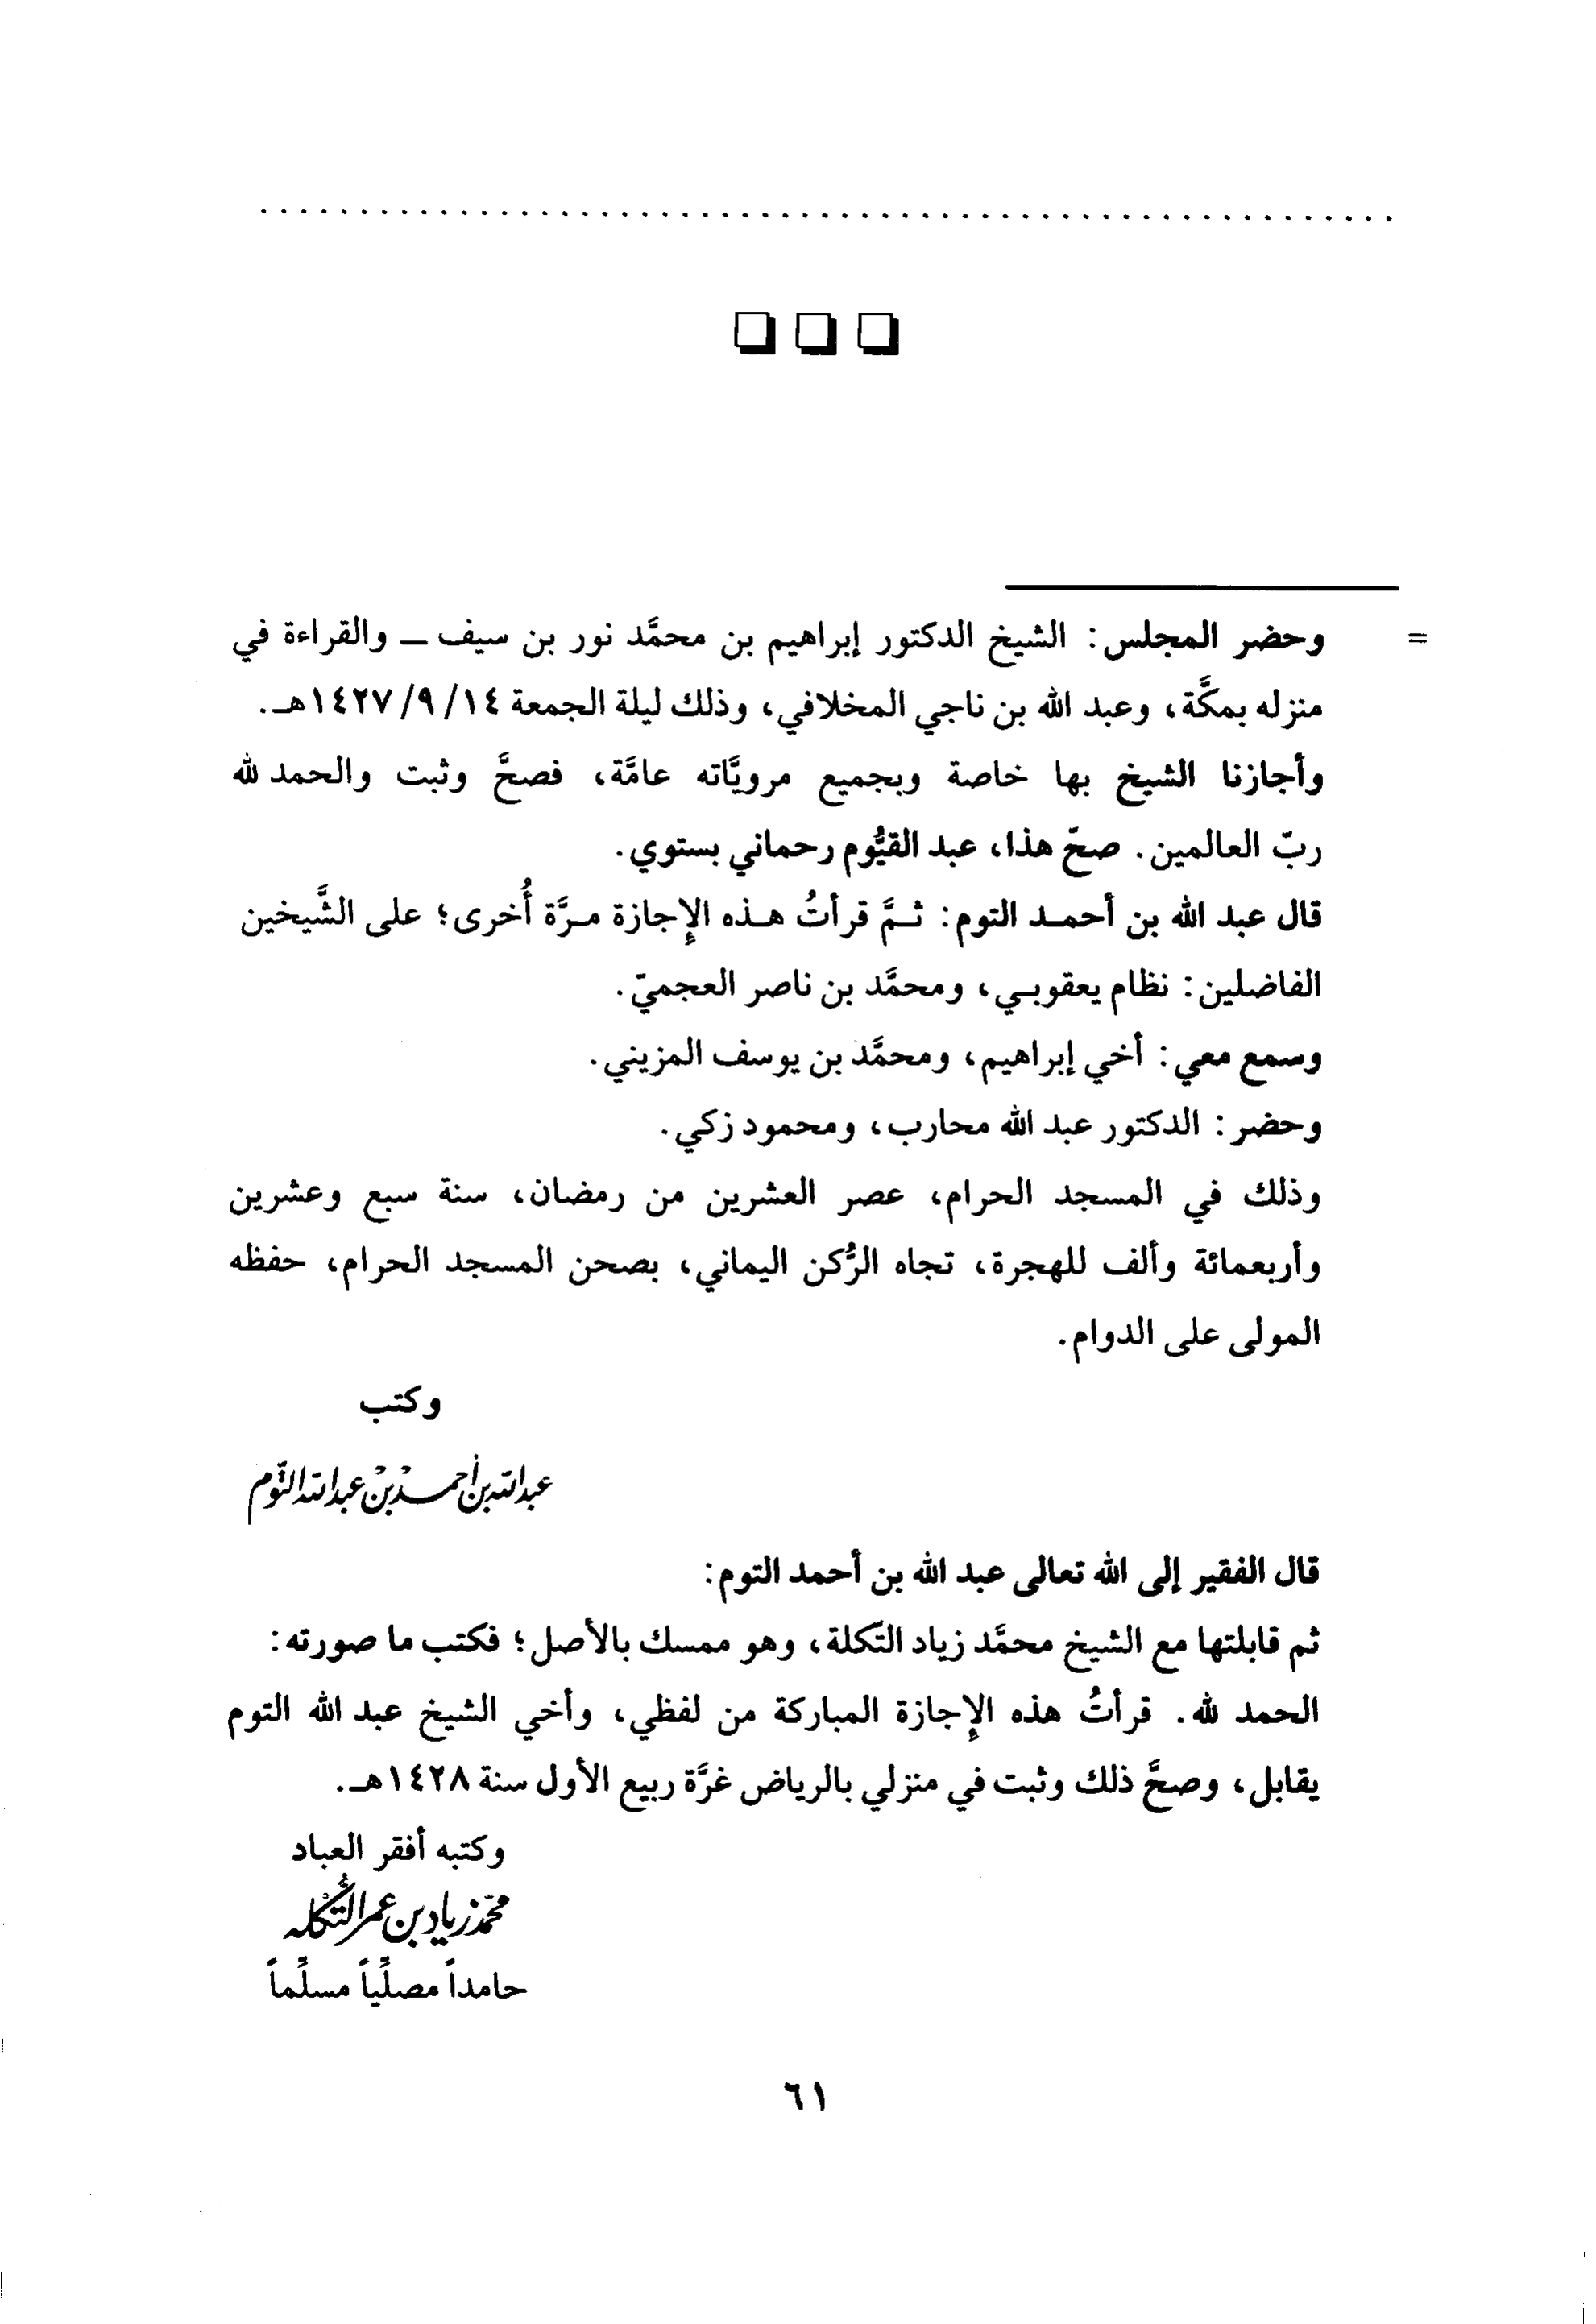 . . . . . . . . . . . . . . . . . . . . . . . . . . . . . . . . . . . . . . . . . . . . . . . . . . . . . . . . .
❏ ❏ ❏
= وحضر المجلس: الشيخ الدكتور إبراهيم بن محمَّد نور بن سيف ــ والقراءة في
منزله بمكَّة، وعبد الله بن ناجي المخلافي، وذلك ليلة الجمعة ١٤/ ٩/ ١٤٢٧هـ.
وأجازنا الشيخ بها خاصة وبجميع مرويَّاته عامَّة، فصحَّ وثبت والحمد لله
ربّ العالمين. صحّ هذا، عبد القيُّوم رحماني بستوي.
قال عبد الله بن أحمـد التوم: ثـمَّ قرأتُ هـذه الإجازة مـرَّة أُخرى؛ على الشَّيخين
الفاضلين: نظام يعقوبـي، ومحمَّد بن ناصر العجميّ.
وسمع معي: أخي إبراهيم، ومحمَّد بن يوسف المزيني.
وحضر: الدكتور عبد الله محارب، ومحمود زكي.
وذلك في المسجد الحرام، عصر العشرين من رمضان، سنة سبع وعشرين
وأربعمائة وألف للهجرة، تجاه الرُّكن اليماني، بصحن المسجد الحرام، حفظه
المولى على الدوام.
وكتب
عبد الله بن أحمد بن عبد الله التوم
قال الفقير إلى الله تعالى عبد الله بن أحمد التوم:
ثم قابلتها مع الشيخ محمَّد زياد التكلة، وهو ممسك بالأصل؛ فكتب ما صورته:
الحمد لله. قرأتُ هذه الإجازة المباركة من لفظي، وأخي الشيخ عبد الله التوم
يقابل، وصحَّ ذلك وثبت في منزلي بالرياض غرَّة ربيع الأول سنة ١٤٢٨هـ.
وكتبه أفقر العباد
محمّد زياد بن عمر التُّكله
حامداً مصلِّياً مسلِّماً
٦١